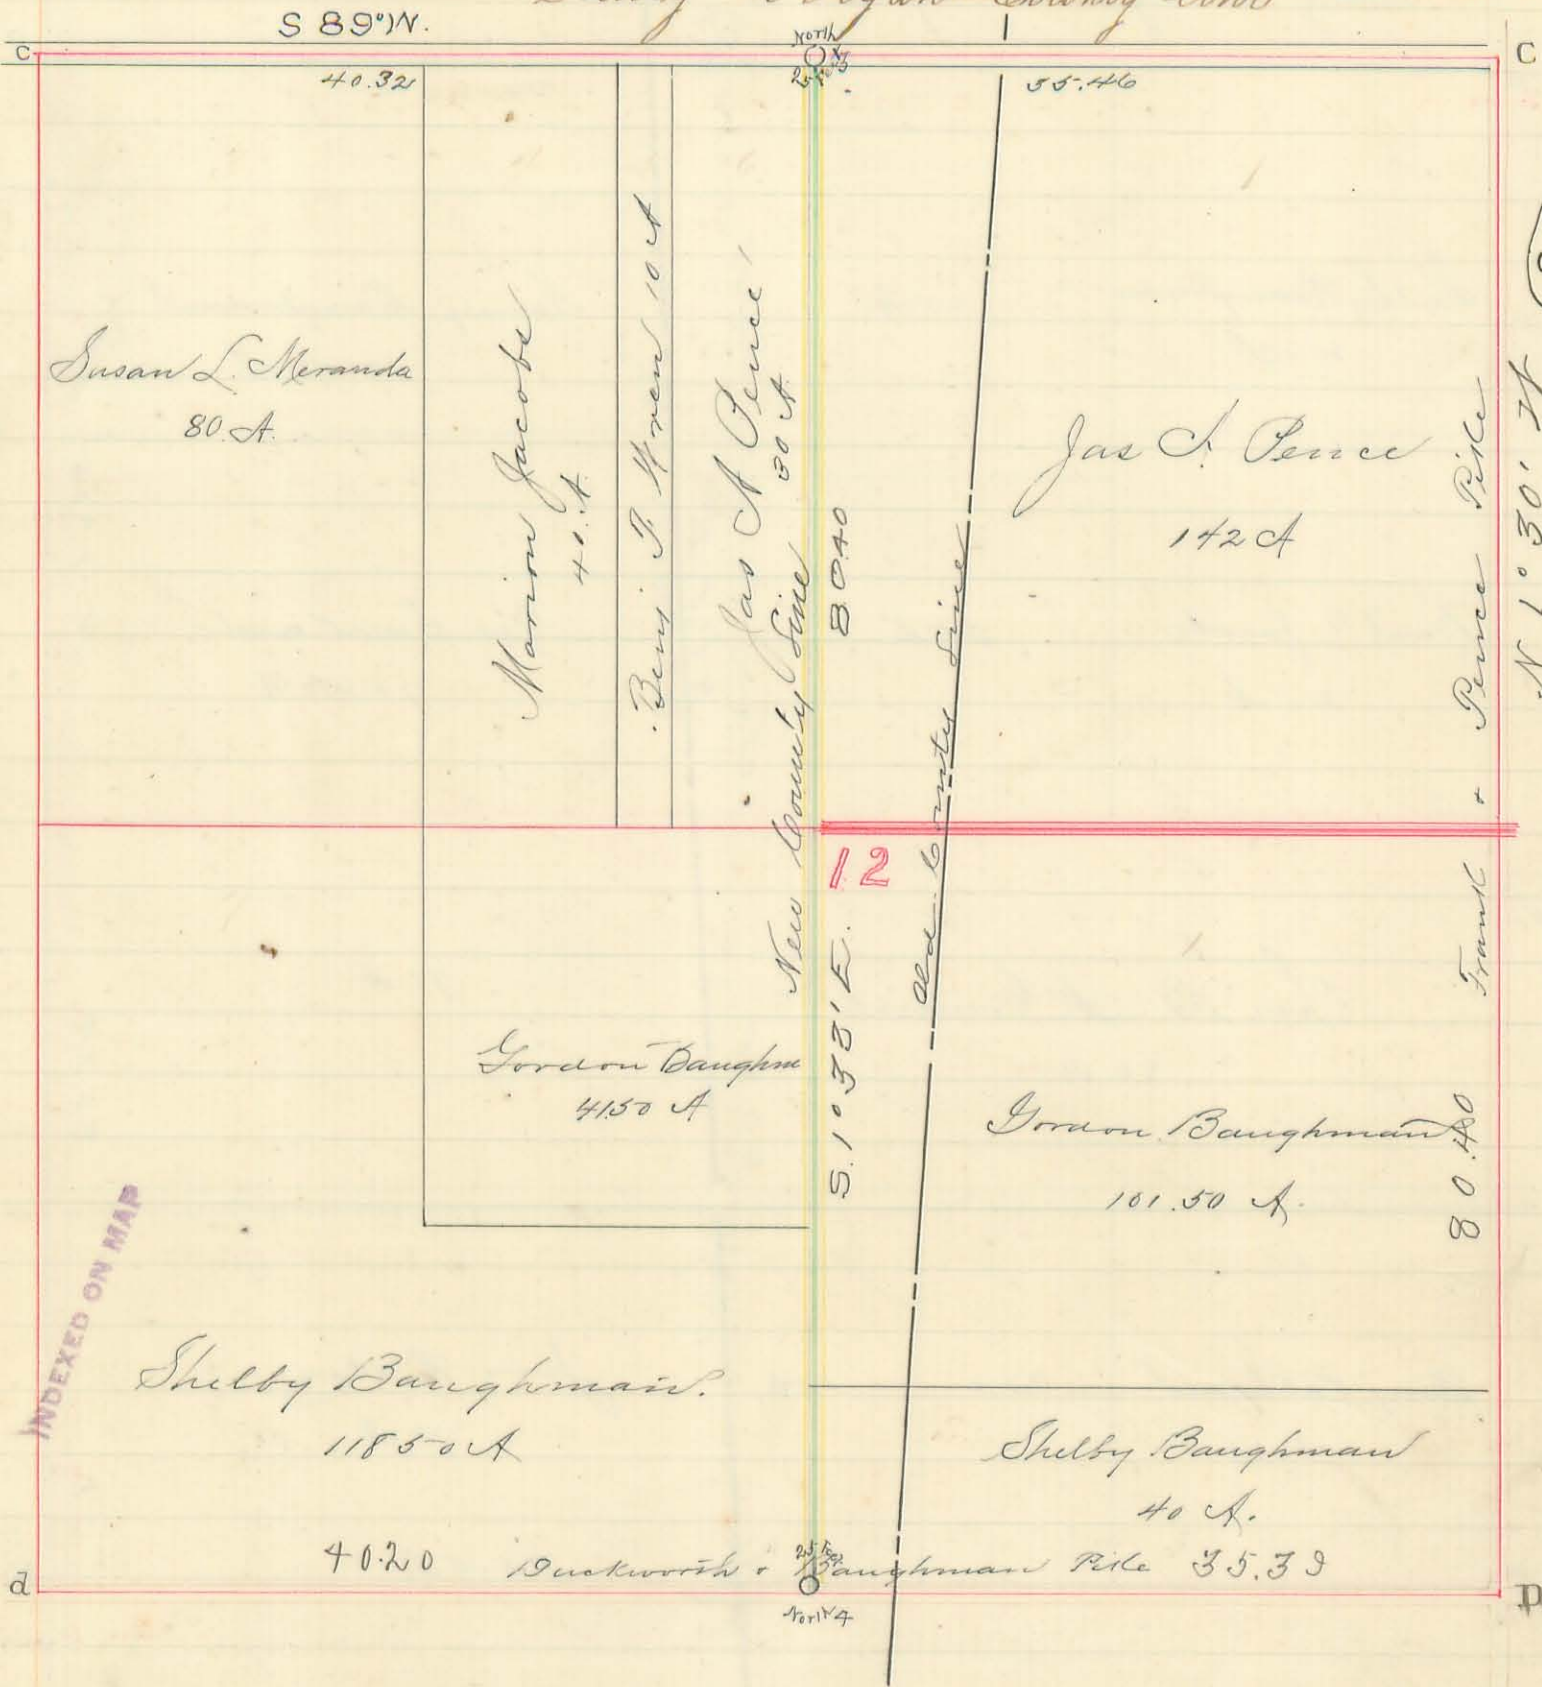 County
S 89° W.
North
C
C
40.32
55.46
Susan L. Meranda
80. A.
Marion Jacobs
40. A.
Benj F. Wren 10 A
Jas A Pence
30 A
New County Line
80.40
S. 1° 38' E.
Old County Line
Jas A. Pence
142 A
Frank & Pence Pike
N 1° 30' W
80.40
12
Gordon Baughm
41.50 A
Gordon Baughman
101.50 A.
INDEXED ON MAP
Shelby Baughman.
118 50 A
Shelby Baughman
40 A.
40.20 Duckworth & Baughman Pike 35.39
d
D
North 4